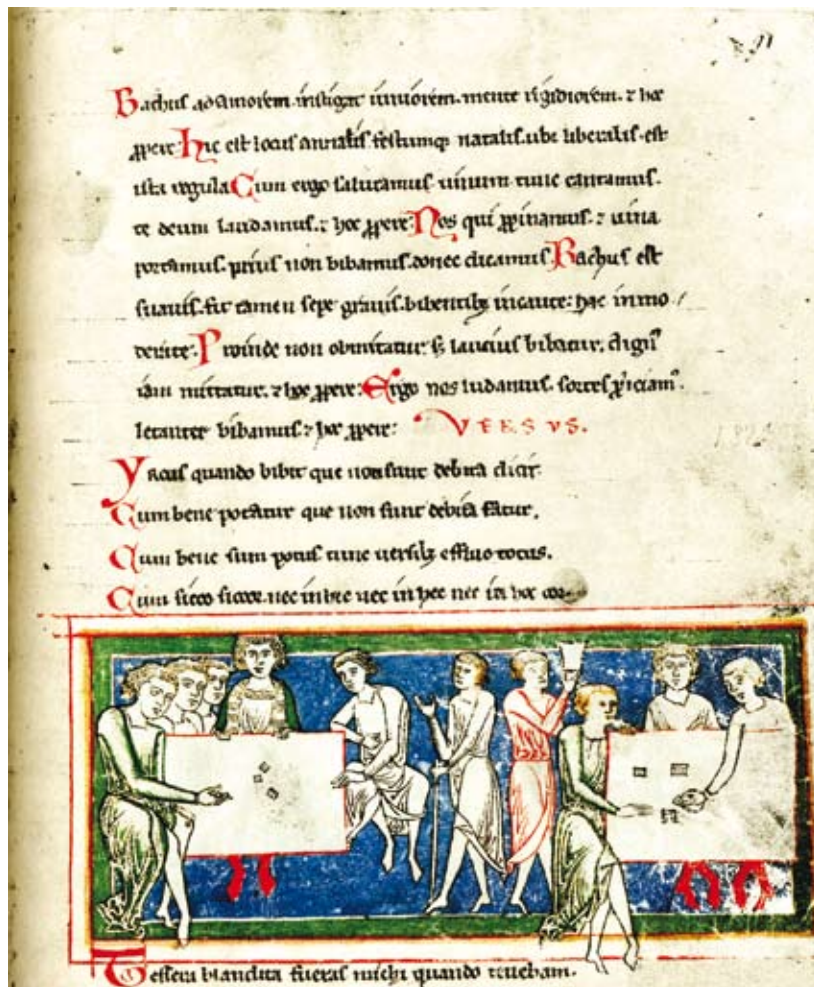 91
Bachus ad amorem. instigat iuniorem. mente rigidiorem. ⁊ hoc
ꝓpere. Hic est locus annalis festumq; natalis. ubi liberalis. est
ista regula Cum ergo salutamus uinum tunc cantamus.
te deum laudamus. ⁊ hoc ꝓpere: Nos qui ꝓpinamus. ⁊ uina
portamus. prius non bibamus. donec dicamus. Bachus est
suauis. fit tamen sepe grauis. bibentibꝫ incaute: hac inmo
derate. Proinde non obmittatur. sꝫ laucius bibatur. dignū
iam mittatur. ⁊ hoc ꝓpere: Ergo nos ludamus. sortes ꝓiciamꝰ.
letanter bibamus. ⁊ hoc ꝓpere: VERSVS.
Yrcus quando bibit que non sunt debita dicit.
Cum bene potatur que non sunt debita fatur.
Cum bene sum potus tunc uersibꝫ effluo totus.
Cum sicco sicco. nec in nec in hec nec in hoc cor
Tessera blandita fueras michi quando tenebam.